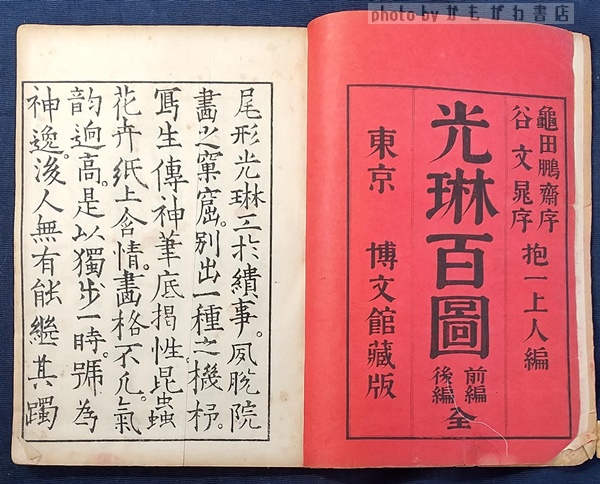 photo by かもがわ書店
龜田鵬齋序
谷文晁序
抱一上人編
光琳百圖
前編
後編
全
東京 博文館藏版
尾形光琳工於繢事。夙脫院
畫之窠窟。別出一種之機杼。
寫生傳神筆底揭性。昆蟲
花卉紙上含情。畫格不凡。氣
韵逈高。是以獨步一時。號為
神逸。後人無有能繼其躅